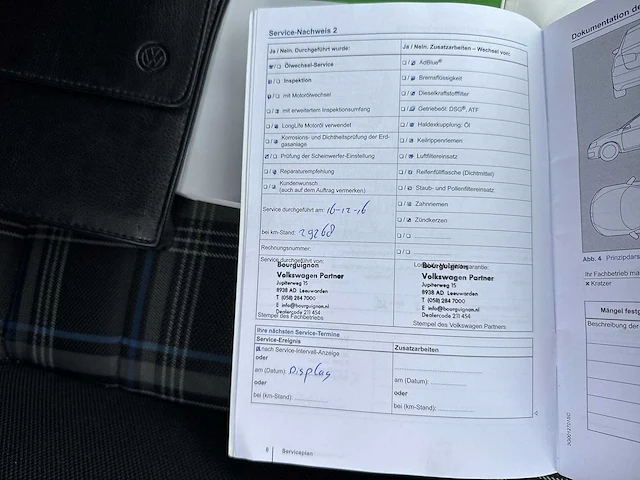 Service-Nachweis 2
Ja / Nein. Durchgeführt wurde:
Ölwechsel-Service
Inspektion
mit Motorölwechsel
mit erweitertem Inspektionsumfang
LongLife Motoröl verwendet
Korrosions- und Dichtheitsprüfung der Erd-
gasanlage
Prüfung der Scheinwerfer-Einstellung
Reparaturempfehlung
Kundenwunsch
(auch auf dem Auftrag vermerken)
Service durchgeführt am: 16-12-16
bei km-Stand: 29268
Rechnungsnummer:
Service durchgeführt von:
Bourguignon
Volkswagen Partner
Jupiterweg 15
8938 AD Leeuwarden
T (058) 284 7000
E info@bourguignon.nl
Dealercode 211 454
Stempel des Fachbetriebs
Ja / Nein. Zusatzarbeiten – Wechsel von:
AdBlue®
Bremsflüssigkeit
Dieselkraftstofffilter
Getriebeöl: DSG®, ATF
Haldexkupplung: Öl
Keilrippenriemen
Luftfiltereinsatz
Reifenfüllflasche (Dichtmittel)
Staub- und Pollenfiltereinsatz
Zahnriemen
Zündkerzen
Bourguignon
Volkswagen Partner
Jupiterweg 15
8938 AD Leeuwarden
T (058) 284 7000
E info@bourguignon.nl
Dealercode 211 454
Stempel des Volkswagen Partners
Ihre nächsten Service-Termine
Service-Ereignis
nach Service-Intervall-Anzeige
oder
am (Datum): Display
oder
bei (km-Stand):
Zusatzarbeiten
am (Datum):
oder
bei (km-Stand):
8 Serviceplan
Dokumentation de
Abb. 4 Prinzipdars
Ihr Fachbetrieb ma
× Kratzer
Mängel festg
Beschreibung der